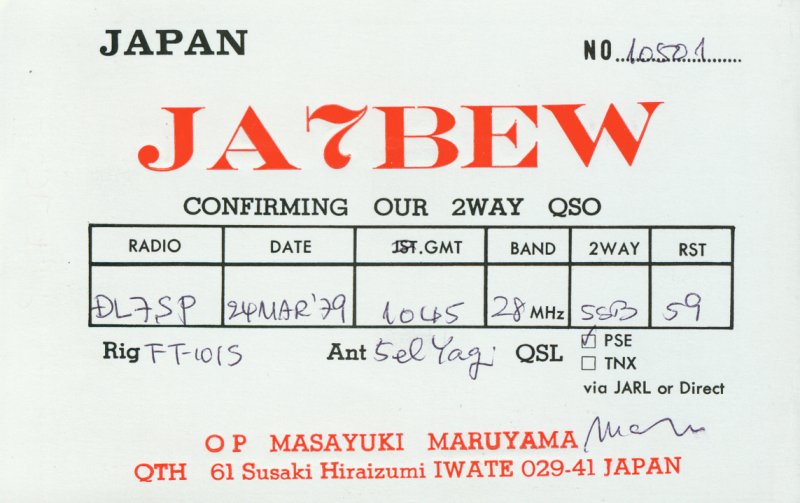 JAPAN NO. 10501
JA7BEW
CONFIRMING OUR 2WAY QSO
RADIO DATE JST.GMT BAND 2WAY RST
DL7SP 24 MAR '79 1045 28 MHz SSB 59
Rig FT-101S Ant 5el Yagi QSL PSE
TNX
via JARL or Direct
OP MASAYUKI MARUYAMA
QTH 61 Susaki Hiraizumi IWATE 029-41 JAPAN